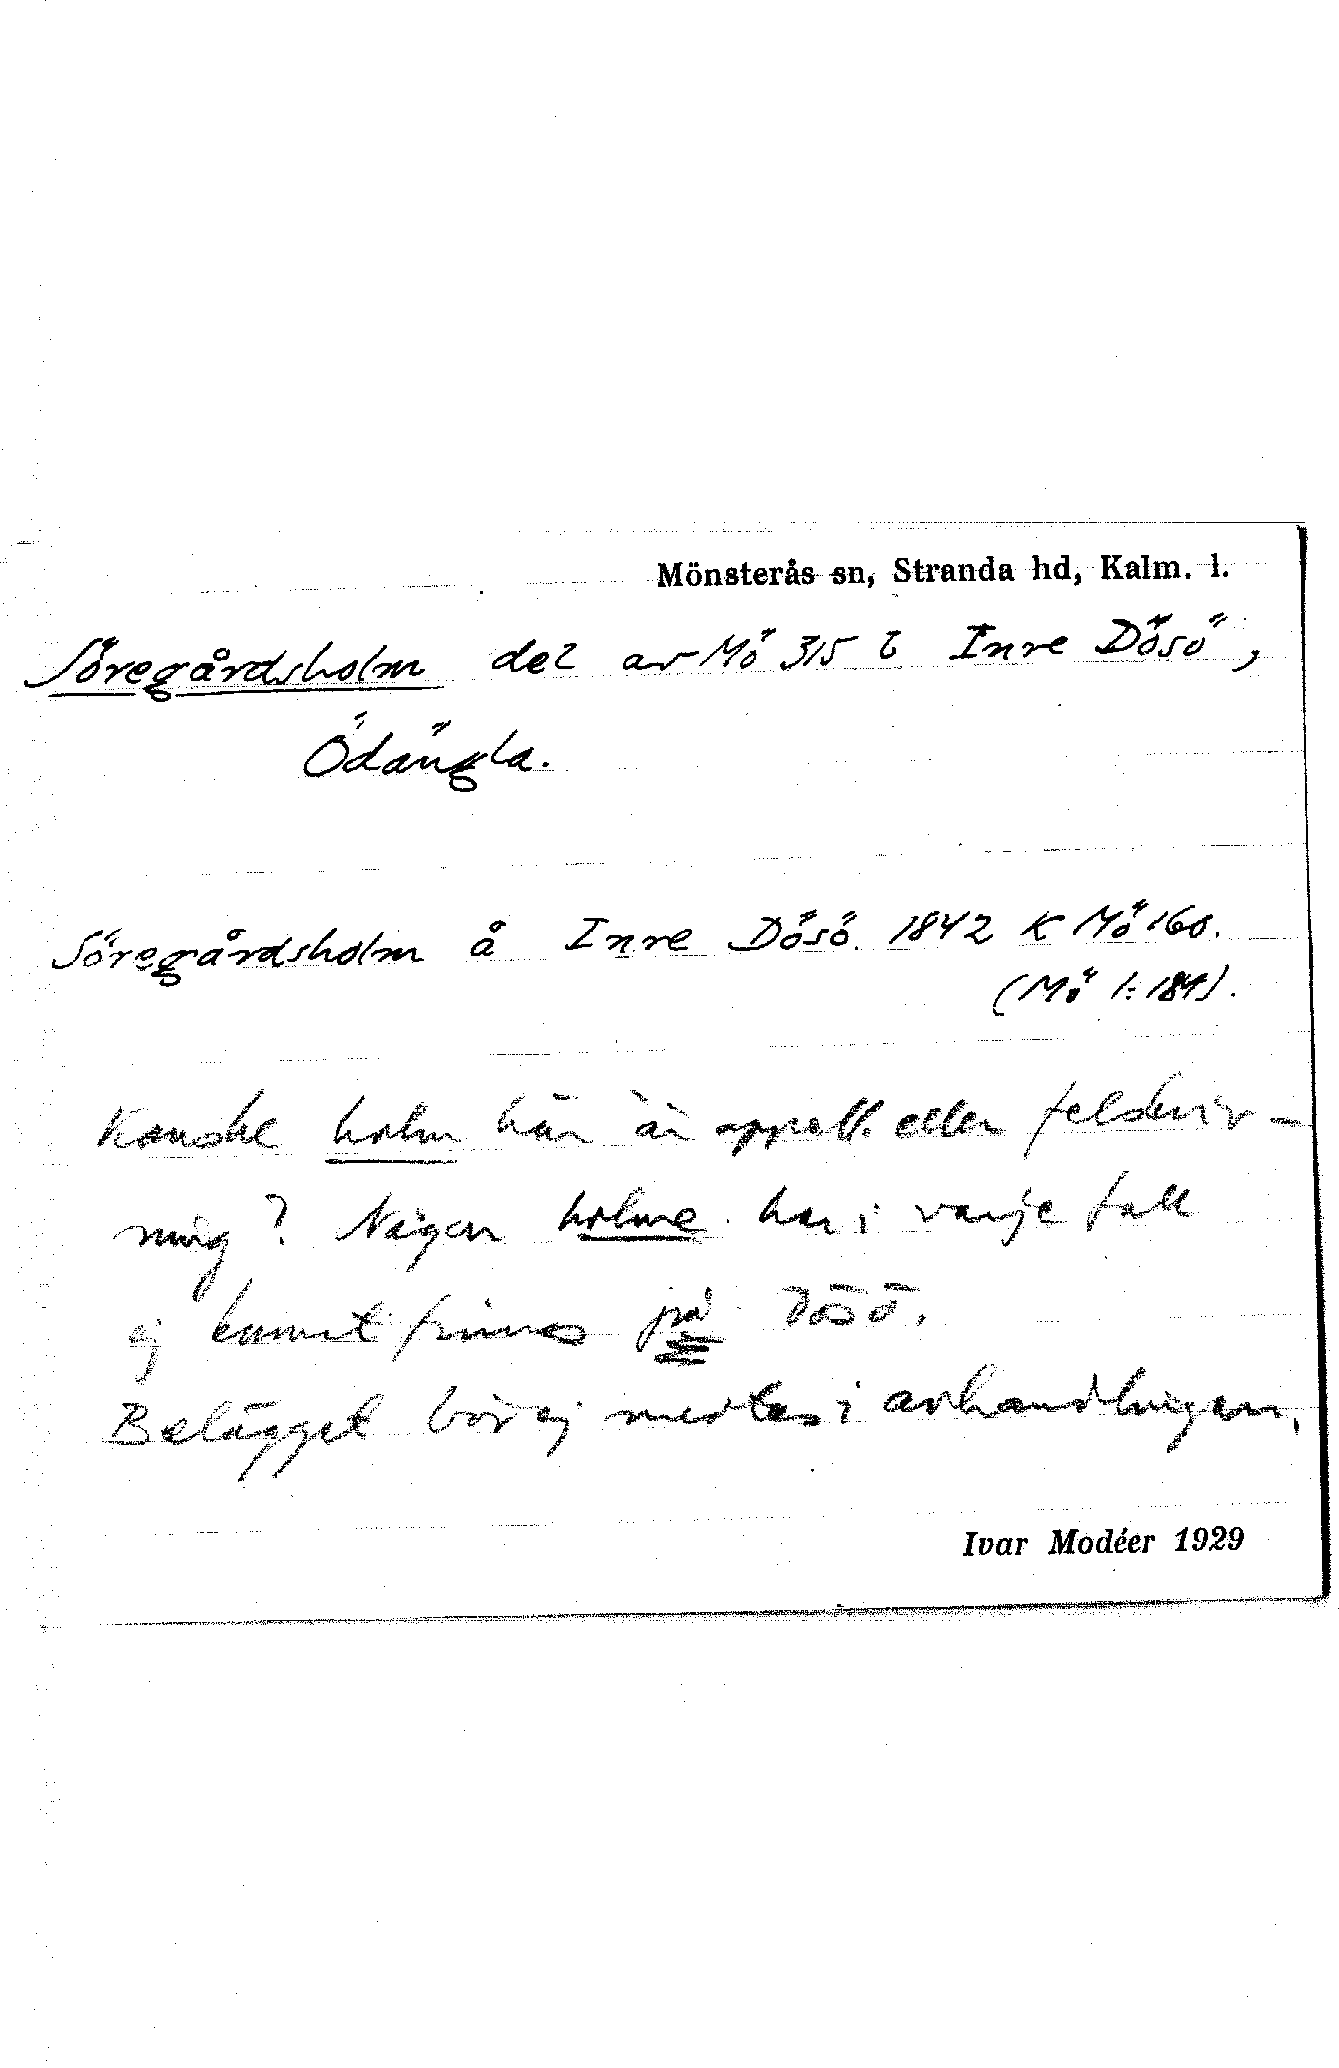 Mönsterås sn, Stranda hd, Kalm. l.
Söregårdsholm del av Mö 315 l Inre Dösö,
Ödängla.
Söregårdsholm å Inre Dösö 1842 K Mö 160.
(Mö 1: 184).
Kanske holm här är appell. eller felskriv-
ning? Någon holme har i varje fall
ej kunnat finnas på Dösö.
Belägget bör ej medtas i avhandlingen.
Ivar Modéer 1929